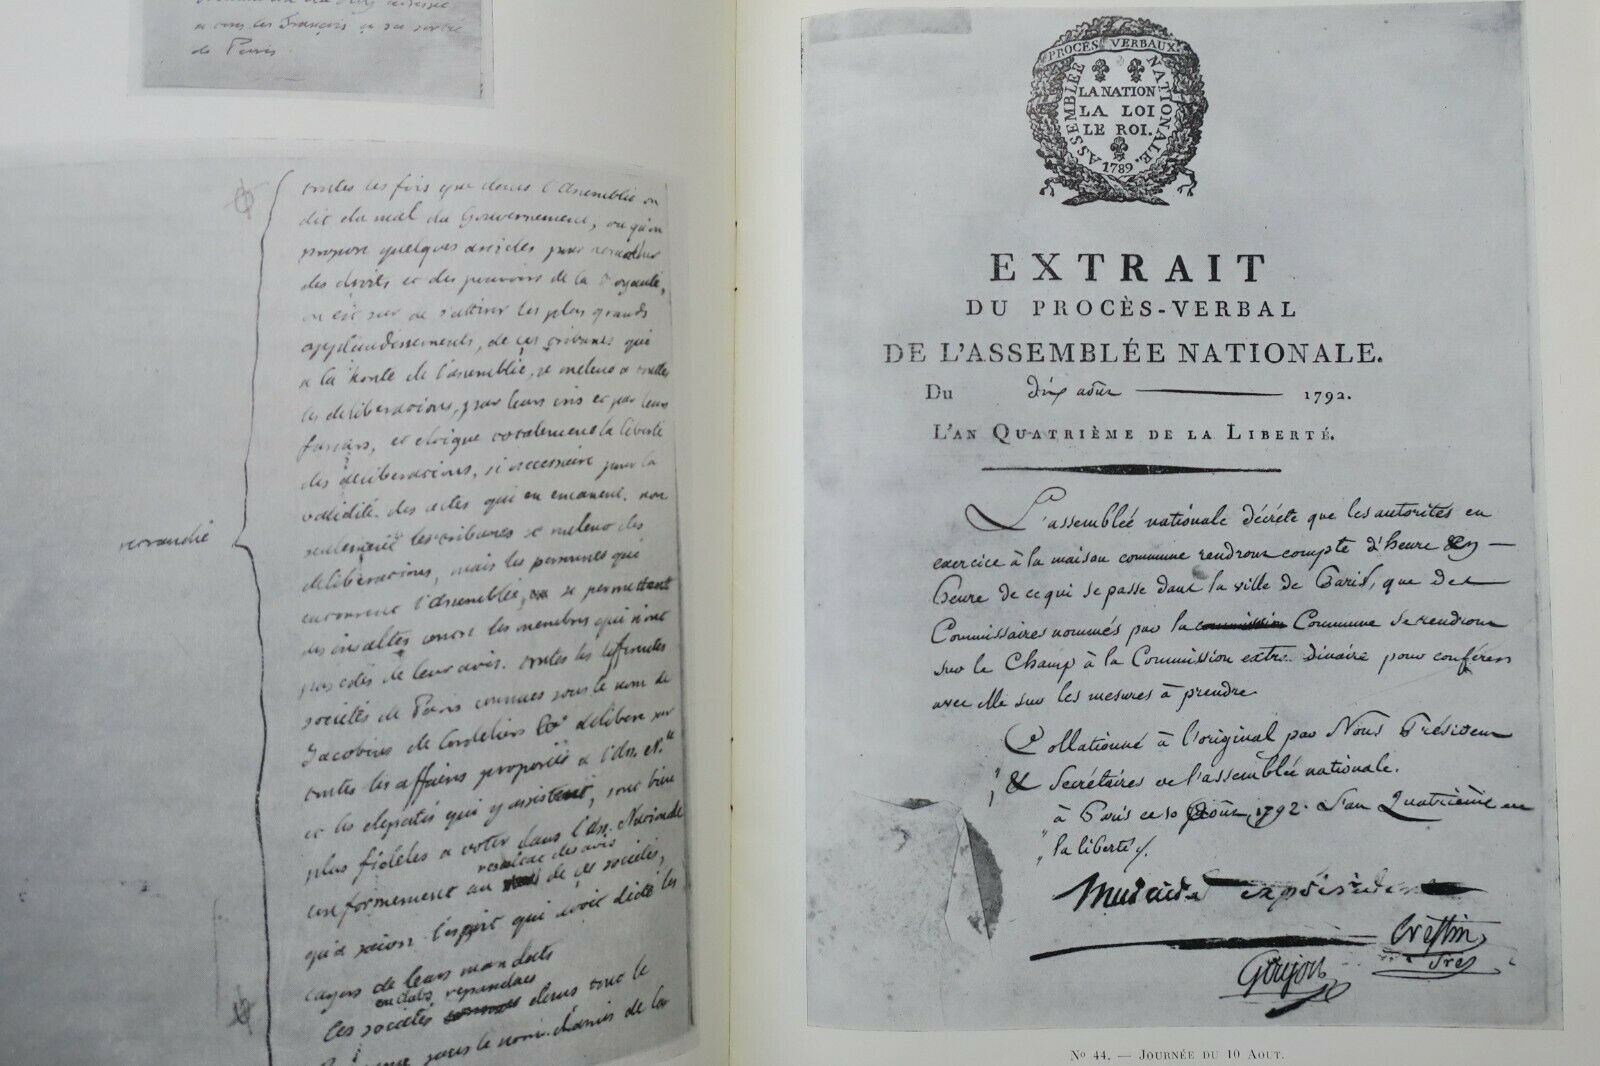 à tous les Français à sa sortie
de Paris
toutes les fois que dans l'assemblée on
dit du mal du Gouvernement, ou qu'on
propose quelques articles pour
des droits et des pouvoirs de la Royauté,
on est sur de s'attirer les plus grands
applaudissements, de ces tribunes qui
a la honte de l'assemblée, se melent a toutes
les deliberations, par leurs cris et par leurs
et eloigne totalement la liberté
des deliberations, si necessaire pour la
validité des actes qui en emanent. non
seulement les tribunes se melent des
deliberations, mais les personnes qui
entourent l'assemblée, se permettent
des insultes contre les membres qui n'ont
pas etés de leur avis. toutes les differentes
sociétés de Paris connues sous le nom de
Jacobins de Cordeliers &a deliberent sur
toutes les affaires proposées a l'As. Nle
et les deputés qui y assistent, sont bien
plus fideles a voter dans l'As. Nationale
resultat des avis
conformement au de ces sociétés,
qu'a suivre l'esprit qui avoit dicté les
cayers de leurs mandats
clubs repandues
Ces sociétés dans tout le
sous le nom d'amis de la
retranché
PROCÈS VERBAUX.
ASSEMBLÉE NATIONALE.
LA NATION
LA LOI
LE ROI.
1789
EXTRAIT
DU PROCÈS-VERBAL
DE L'ASSEMBLÉE NATIONALE.
Du dix août 1792.
L'AN QUATRIÈME DE LA LIBERTÉ.
L'assemblée nationale décrète que les autorités en
exercice à la maison commune rendront compte d'heure en
heure de ce qui se passe dans la ville de Paris, que des
Commissaires nommés par la commission Commune se rendront
sur le Champ à la Commission extraordinaire pour conférer
avec elle sur les mesures à prendre.
Collationné à l'original par Nous Président
& Secrétaires de l'assemblée nationale.
à Paris ce 10 août 1792. L'an Quatrième de
la liberté.
Crestin
Goujon
Nº 44. — JOURNÉE DU 10 AOUT.